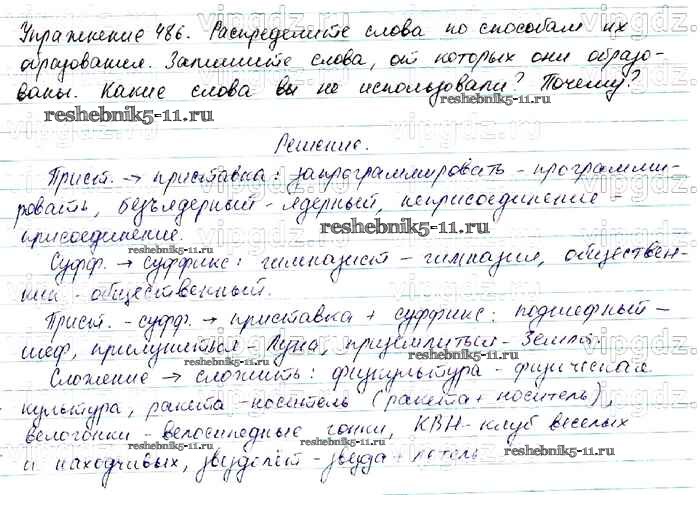 Упражнение 486. Распределите слова по способам их
образования. Запишите слова, от которых они образо-
ваны. Какие слова вы не использовали? Почему?
reshebnik5-11.ru
Решение.
Прист. → приставка: запрограммировать - программи-
ровать, безъядерный - ядерный, неприсоединение -
reshebnik5-11.ru
присоединение.
reshebnik5-11.ru
Суфф. → суффикс: гимназист - гимназия, обществен-
ник - общественный.
Прист.-суфф. → приставка + суффикс: подшефный -
шеф, прилуниться - Луна, приземлиться - Земля.
reshebnik5-11.ru
Сложение → сложить: физкультура - физическая
культура, ракета-носитель (ракета + носитель),
велогонки - велосипедные гонки, КВН - клуб веселых
и находчивых, звездолёт - звезда +
reshebnik5-11.ru
reshebnik5-11.ru
vipgdz.ru